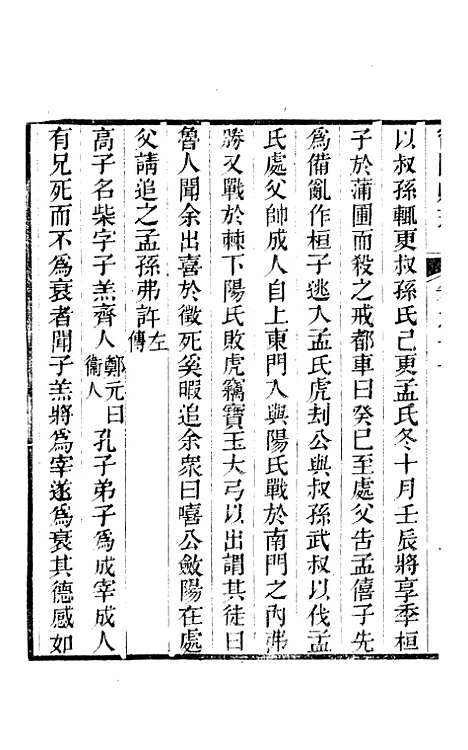 以叔孫輒更叔孫氏己更孟氏冬十月壬辰將享季桓
子於蒲圃而殺之戒都車曰癸巳至處父告孟僖子先
爲備亂作桓子逃入孟氏虎刦公與叔孫武叔以伐孟
氏處父帥成人自上東門入與陽氏戰於南門之內弗
勝又戰於棘下陽氏敗虎竊寶玉大弓以出謂其徒曰
魯人聞余出喜於徵死奚暇追余衆曰嘻公斂陽在處
父請追之孟孫弗許左傳
高子名柴字子羔齊人鄭元曰衞人孔子弟子爲成宰成人
有兄死而不爲衰者聞子羔將爲宰遂爲衰其德感如